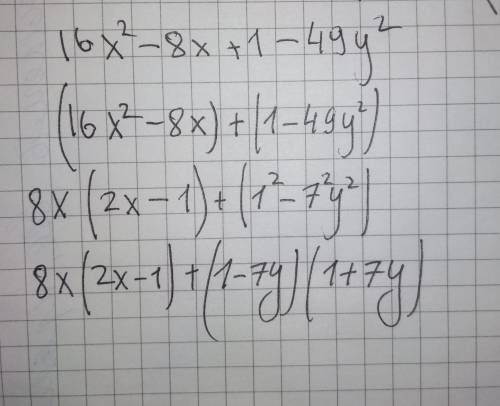 16x² - 8x + 1 - 49y²
(16x² - 8x) + (1 - 49y²)
8x(2x - 1) + (1² - 7²y²)
8x(2x - 1) + (1 - 7y)(1 + 7y)